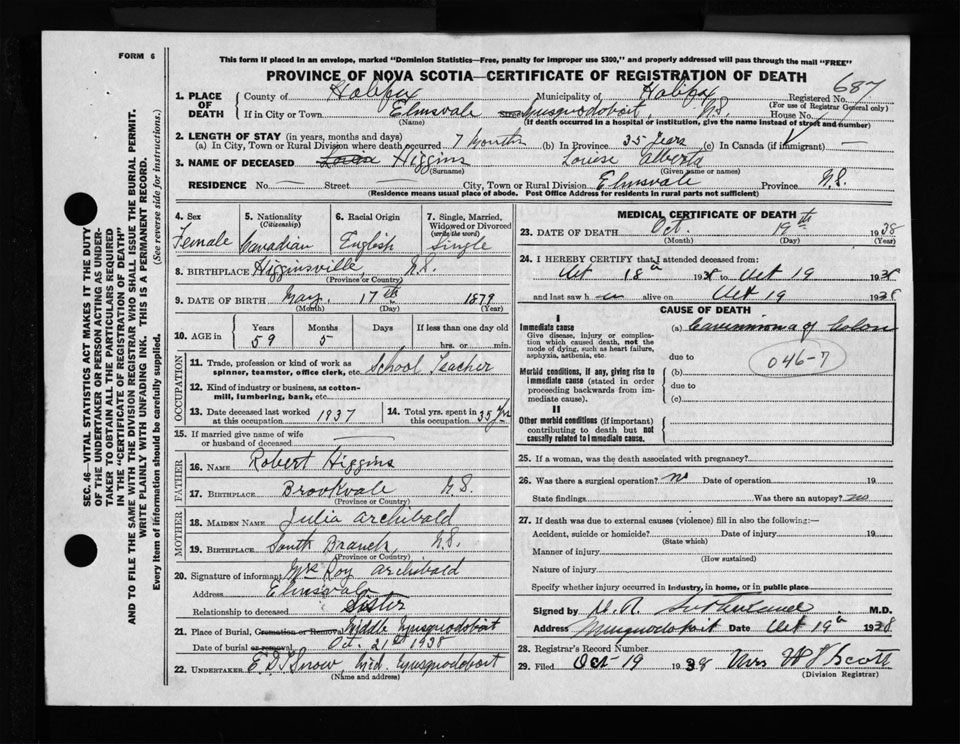 FORM 6
This form if placed in an envelope, marked "Dominion Statistics—Free, penalty for improper use $300," and properly addressed will pass through the mail "FREE"
PROVINCE OF NOVA SCOTIA—CERTIFICATE OF REGISTRATION OF DEATH
687
1. PLACE OF DEATH County of Halifax Municipality of Halifax Registered No.
(For use of Registrar General only)
If in City or Town Elmsvale Musquodoboit, N.S. House No.
(Name) (If death occurred in a hospital or institution, give the name instead of street and number)
2. LENGTH OF STAY (in years, months and days)
(a) In City, Town or Rural Division where death occurred 7 months (b) In Province 35 years (c) In Canada (if immigrant) —
3. NAME OF DECEASED Higgins Louise Alberta
(Surname) (Given name or names)
RESIDENCE No. — Street City, Town or Rural Division Elmsvale Province N.S.
(Residence means usual place of abode. Post Office Address for residents in rural parts not sufficient)
4. Sex Female
5. Nationality (Citizenship) Canadian
6. Racial Origin English
7. Single, Married, Widowed or Divorced (write the word) Single
8. BIRTHPLACE Higginsville, N.S.
(Province or Country)
9. DATE OF BIRTH May 17th 1879
(Month) (Day) (Year)
10. AGE in Years 59 Months 5 Days If less than one day old hrs. or min.
OCCUPATION
11. Trade, profession or kind of work as spinner, teamster, office clerk, etc. School Teacher
12. Kind of industry or business, as cotton-mill, lumbering, bank, etc.
13. Date deceased last worked at this occupation 1937
14. Total yrs. spent in this occupation 35 yrs
15. If married give name of wife or husband of deceased —
FATHER
16. NAME Robert Higgins
17. BIRTHPLACE Brookvale N.S.
(Province or Country)
MOTHER
18. MAIDEN NAME Julia Archibald
19. BIRTHPLACE South Branch, N.S.
(Province or Country)
20. Signature of informant Mrs Roy Archibald
Address Elmsvale
Relationship to deceased Sister
21. Place of Burial, Cremation or Removal Middle Musquodoboit
Date of burial or removal Oct. 21st 1938
22. UNDERTAKER Mid. Musquodoboit
(Name and address)
MEDICAL CERTIFICATE OF DEATH
23. DATE OF DEATH Oct. 19th 1938
(Month) (Day) (Year)
24. I HEREBY CERTIFY that I attended deceased from:
Oct 18th 1938 to Oct 19 1938
and last saw h er alive on Oct 19 1938
CAUSE OF DEATH
I
Immediate cause
Give disease, injury or complication which caused death, not the mode of dying, such as heart failure, asphyxia, asthenia, etc.
(a) Carcinoma of Colon
due to
046-7
Morbid conditions, if any, giving rise to immediate cause (stated in order proceeding backwards from immediate cause).
(b)
due to
(c)
II
Other morbid conditions (if important) contributing to death but not causally related to immediate cause.
25. If a woman, was the death associated with pregnancy?
26. Was there a surgical operation? no Date of operation 19
State findings Was there an autopsy? no
27. If death was due to external causes (violence) fill in also the following:—
Accident, suicide or homicide? Date of injury 19
(State which)
Manner of injury
(How sustained)
Nature of injury
Specify whether injury occurred in industry, in home, or in public place
Signed by M.D.
Address Musquodoboit Date Oct 19th 1938
28. Registrar's Record Number
29. Filed Oct 19 1938 Mrs Scott
(Division Registrar)
SEC. 46—VITAL STATISTICS ACT MAKES IT THE DUTY
OF THE UNDERTAKER OR PERSON ACTING AS UNDER-
TAKER TO OBTAIN ALL THE PARTICULARS REQUIRED
IN THE "CERTIFICATE OF REGISTRATION OF DEATH"
AND TO FILE THE SAME WITH THE DIVISION REGISTRAR WHO SHALL ISSUE THE BURIAL PERMIT.
WRITE PLAINLY WITH UNFADING INK. THIS IS A PERMANENT RECORD.
Every item of information should be carefully supplied. (See reverse side for instructions.)